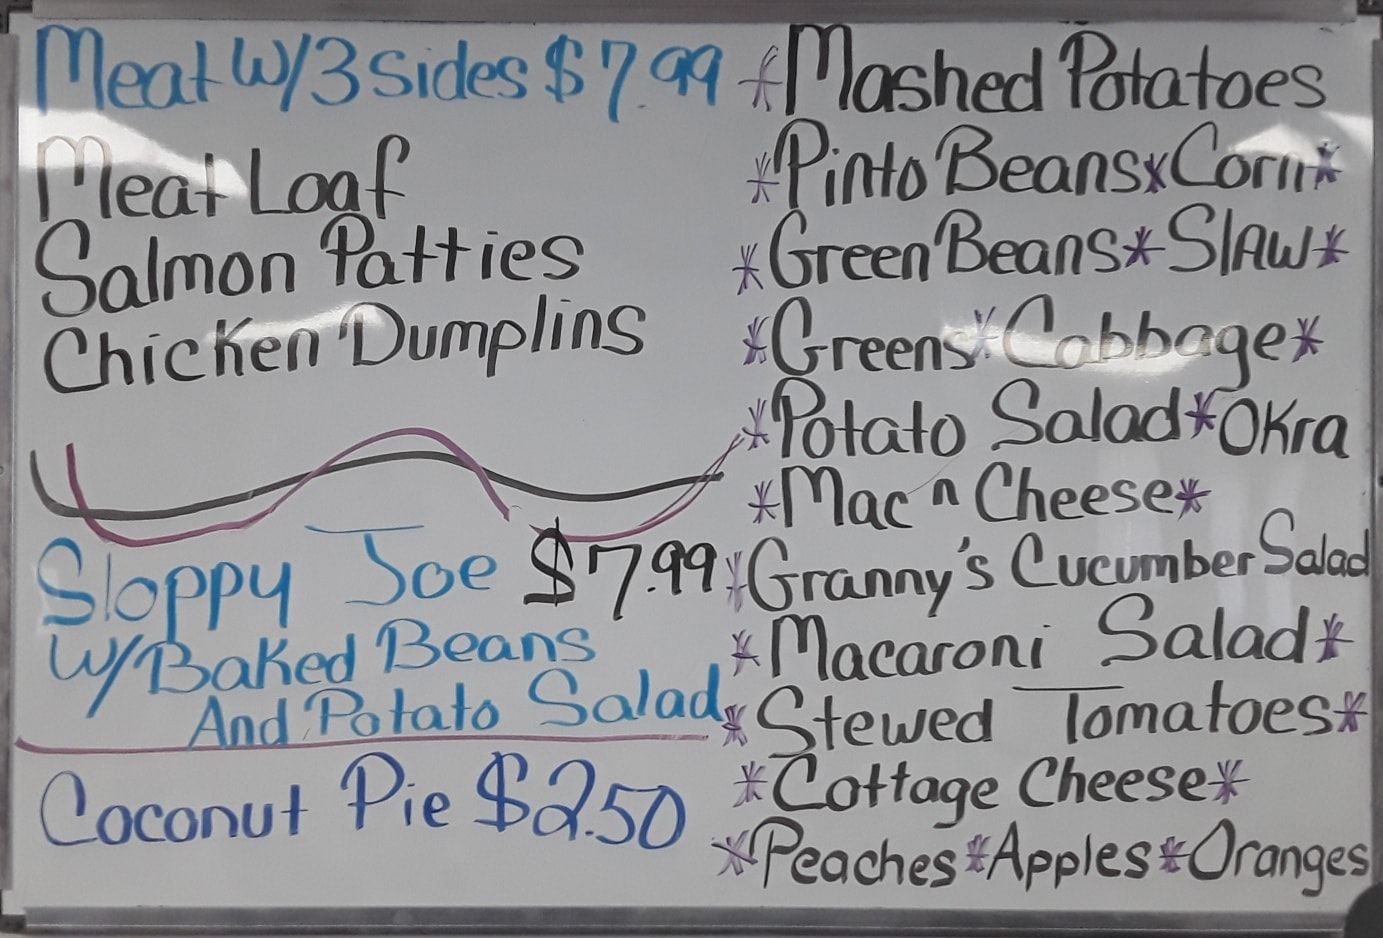 Meat W/3 Sides $7.99
Meat Loaf
Salmon Patties
Chicken Dumplins
Sloppy Joe $7.99
W/Baked Beans
And Potato Salad
Coconut Pie $2.50
*Mashed Potatoes
*Pinto Beans*Corn*
*Green Beans*SlAW*
*Greens*Cabbage*
*Potato Salad*Okra
*Mac n Cheese*
*Granny's Cucumber Salad
*Macaroni Salad*
*Stewed Tomatoes*
*Cottage Cheese*
*Peaches*Apples*Oranges